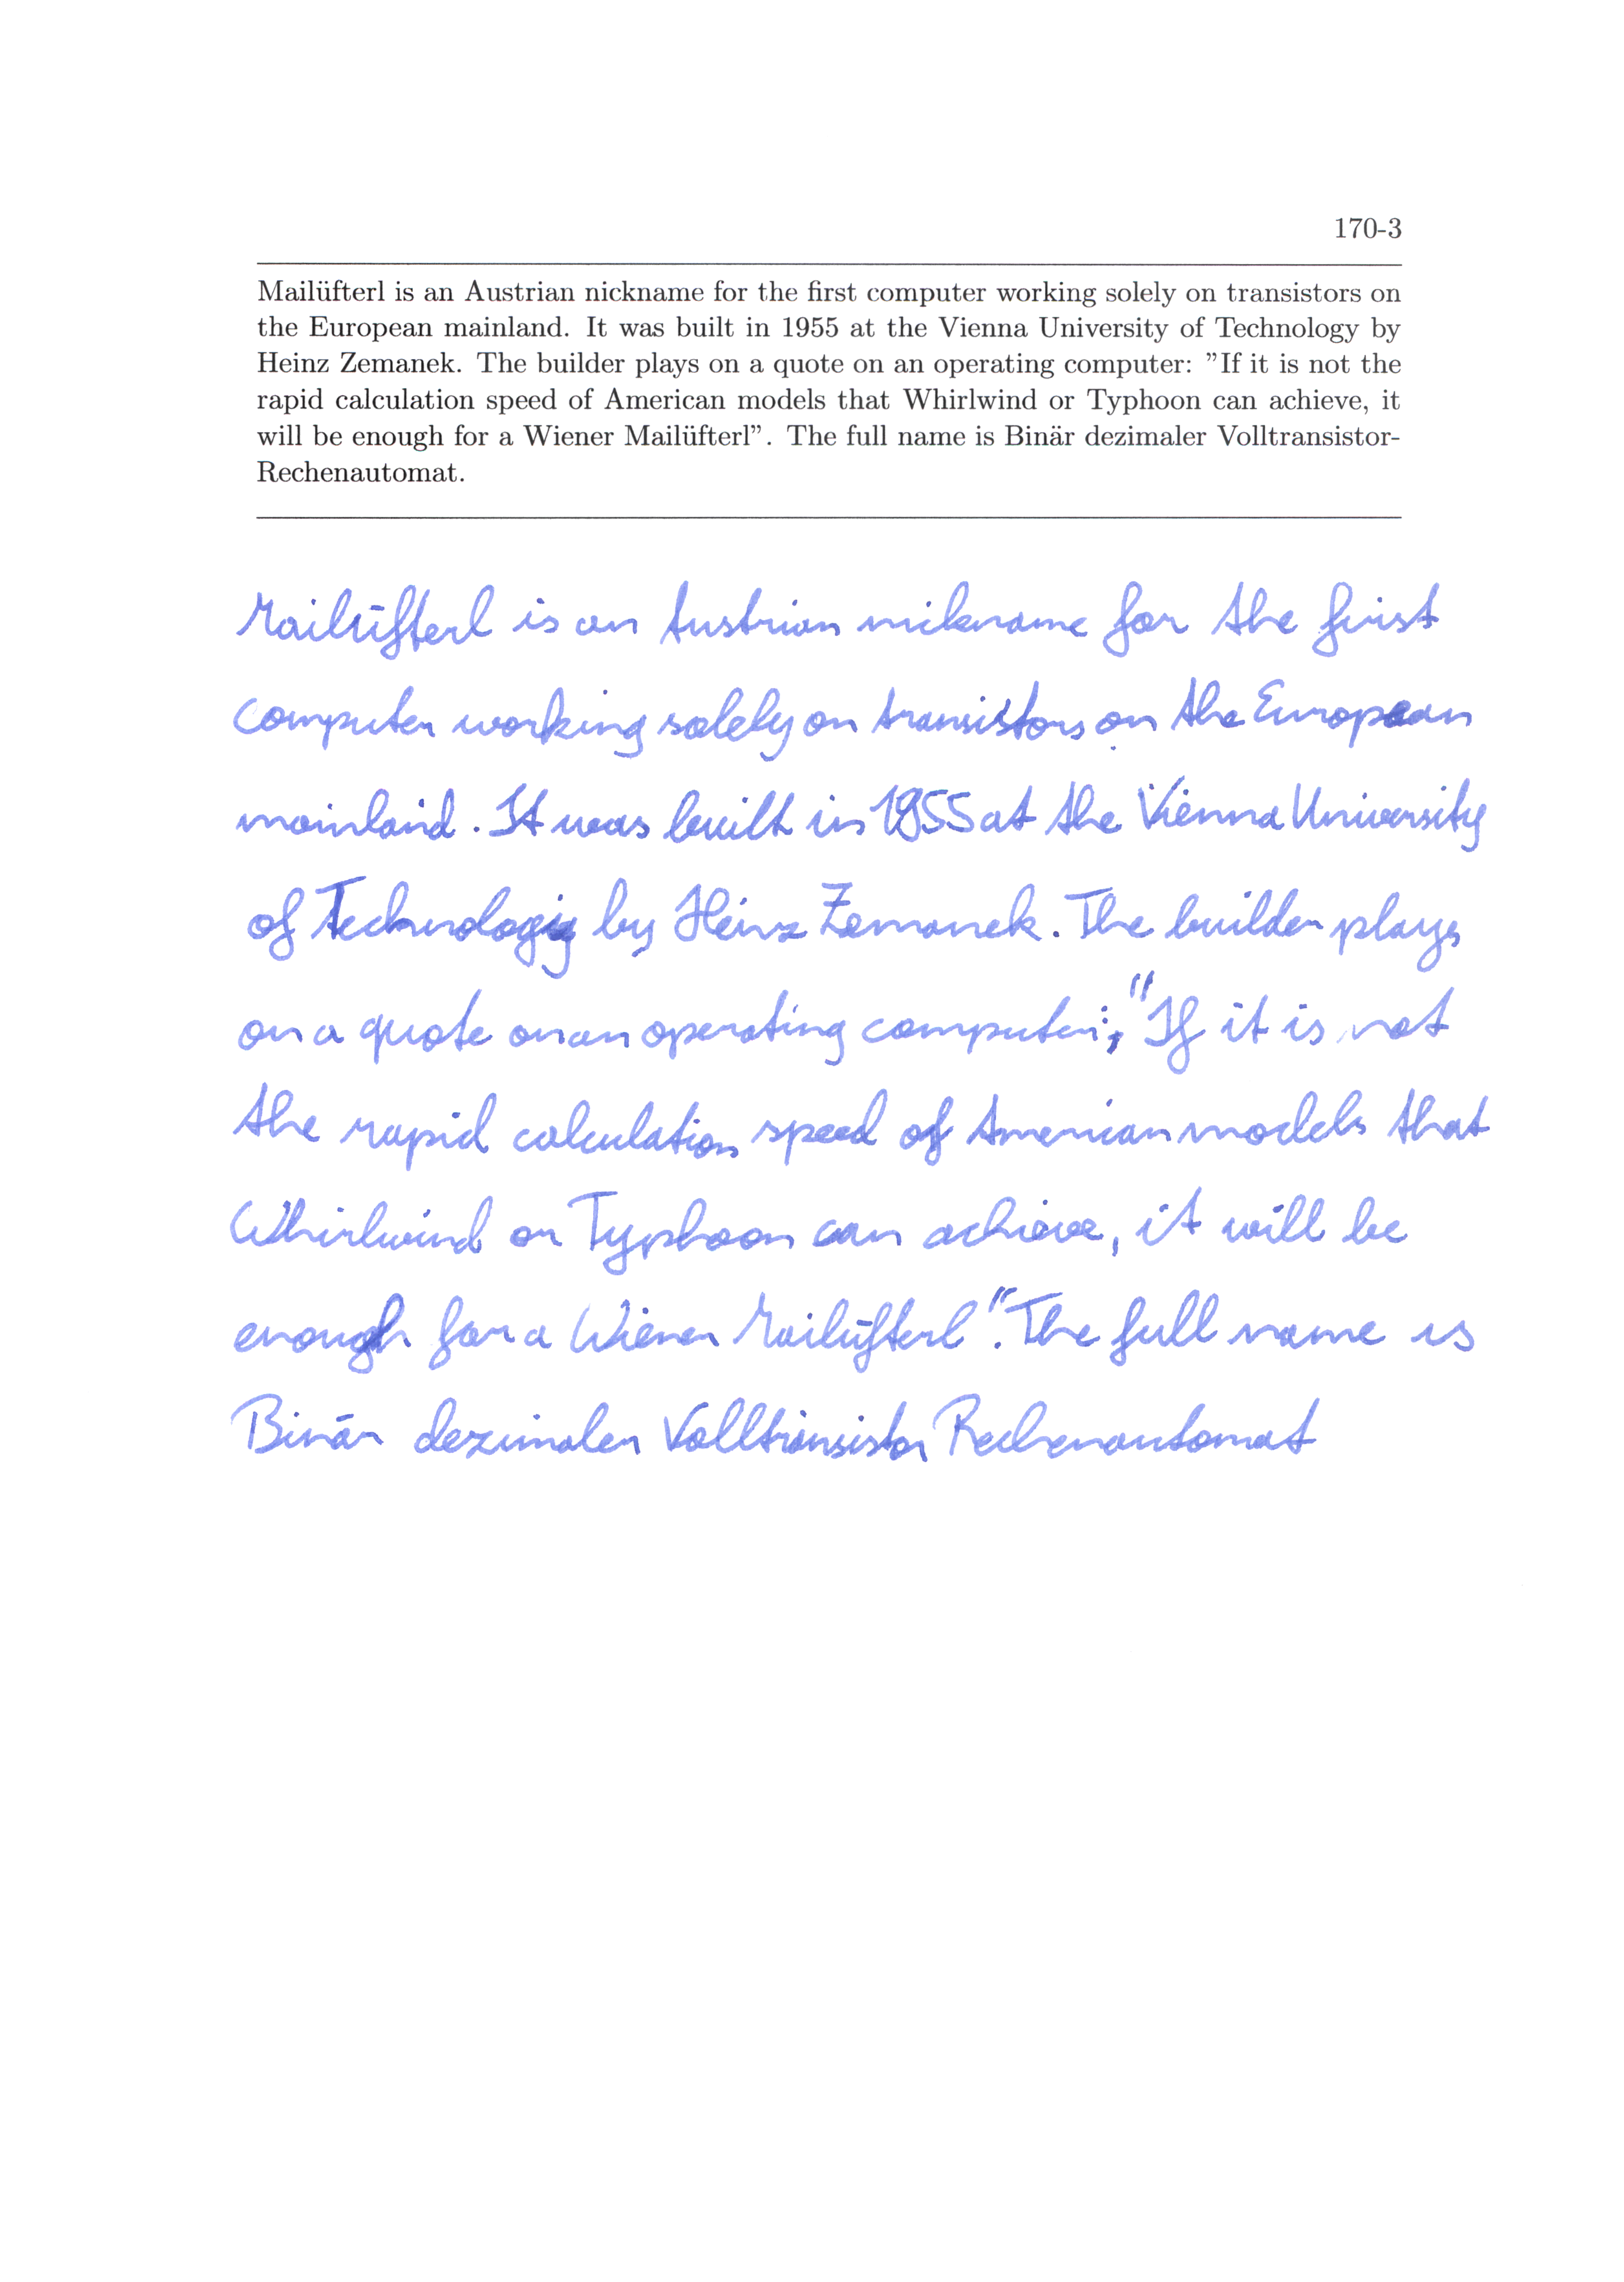 170-3
Mailüfterl is an Austrian nickname for the first computer working solely on transistors on
the European mainland. It was built in 1955 at the Vienna University of Technology by
Heinz Zemanek. The builder plays on a quote on an operating computer: "If it is not the
rapid calculation speed of American models that Whirlwind or Typhoon can achieve, it
will be enough for a Wiener Mailüfterl". The full name is Binär dezimaler Volltransistor-
Rechenautomat.
Mailüfterl is an Austrian nickname for the first
computer working solely on transistors on the European
mainland. It was built in 1955 at the Vienna University
of Technology by Heinz Zemanek. The builder plays
on a quote on an operating computer: "If it is not
the rapid calculation speed of American models that
Whirlwind or Typhoon can achieve, it will be
enough for a Wiener Mailüfterl". The full name is
Binär dezimaler Volltransistor Rechenautomat